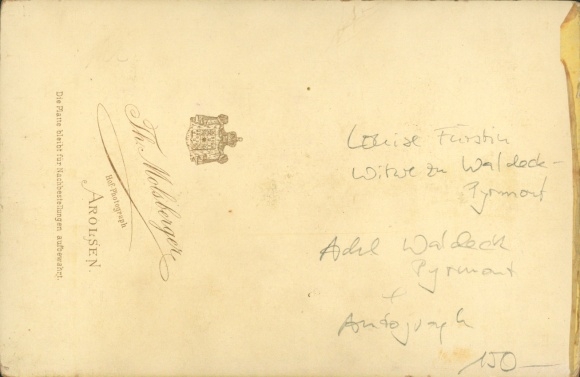 Th. Molsberger
Hof-Photograph
AROLSEN.
Die Platte bleibt für Nachbestellungen aufbewahrt.
Louise Fürstin
Witwe zu Waldeck-
Pyrmont
Adel Waldeck
Pyrmont
+
Autograph
150—